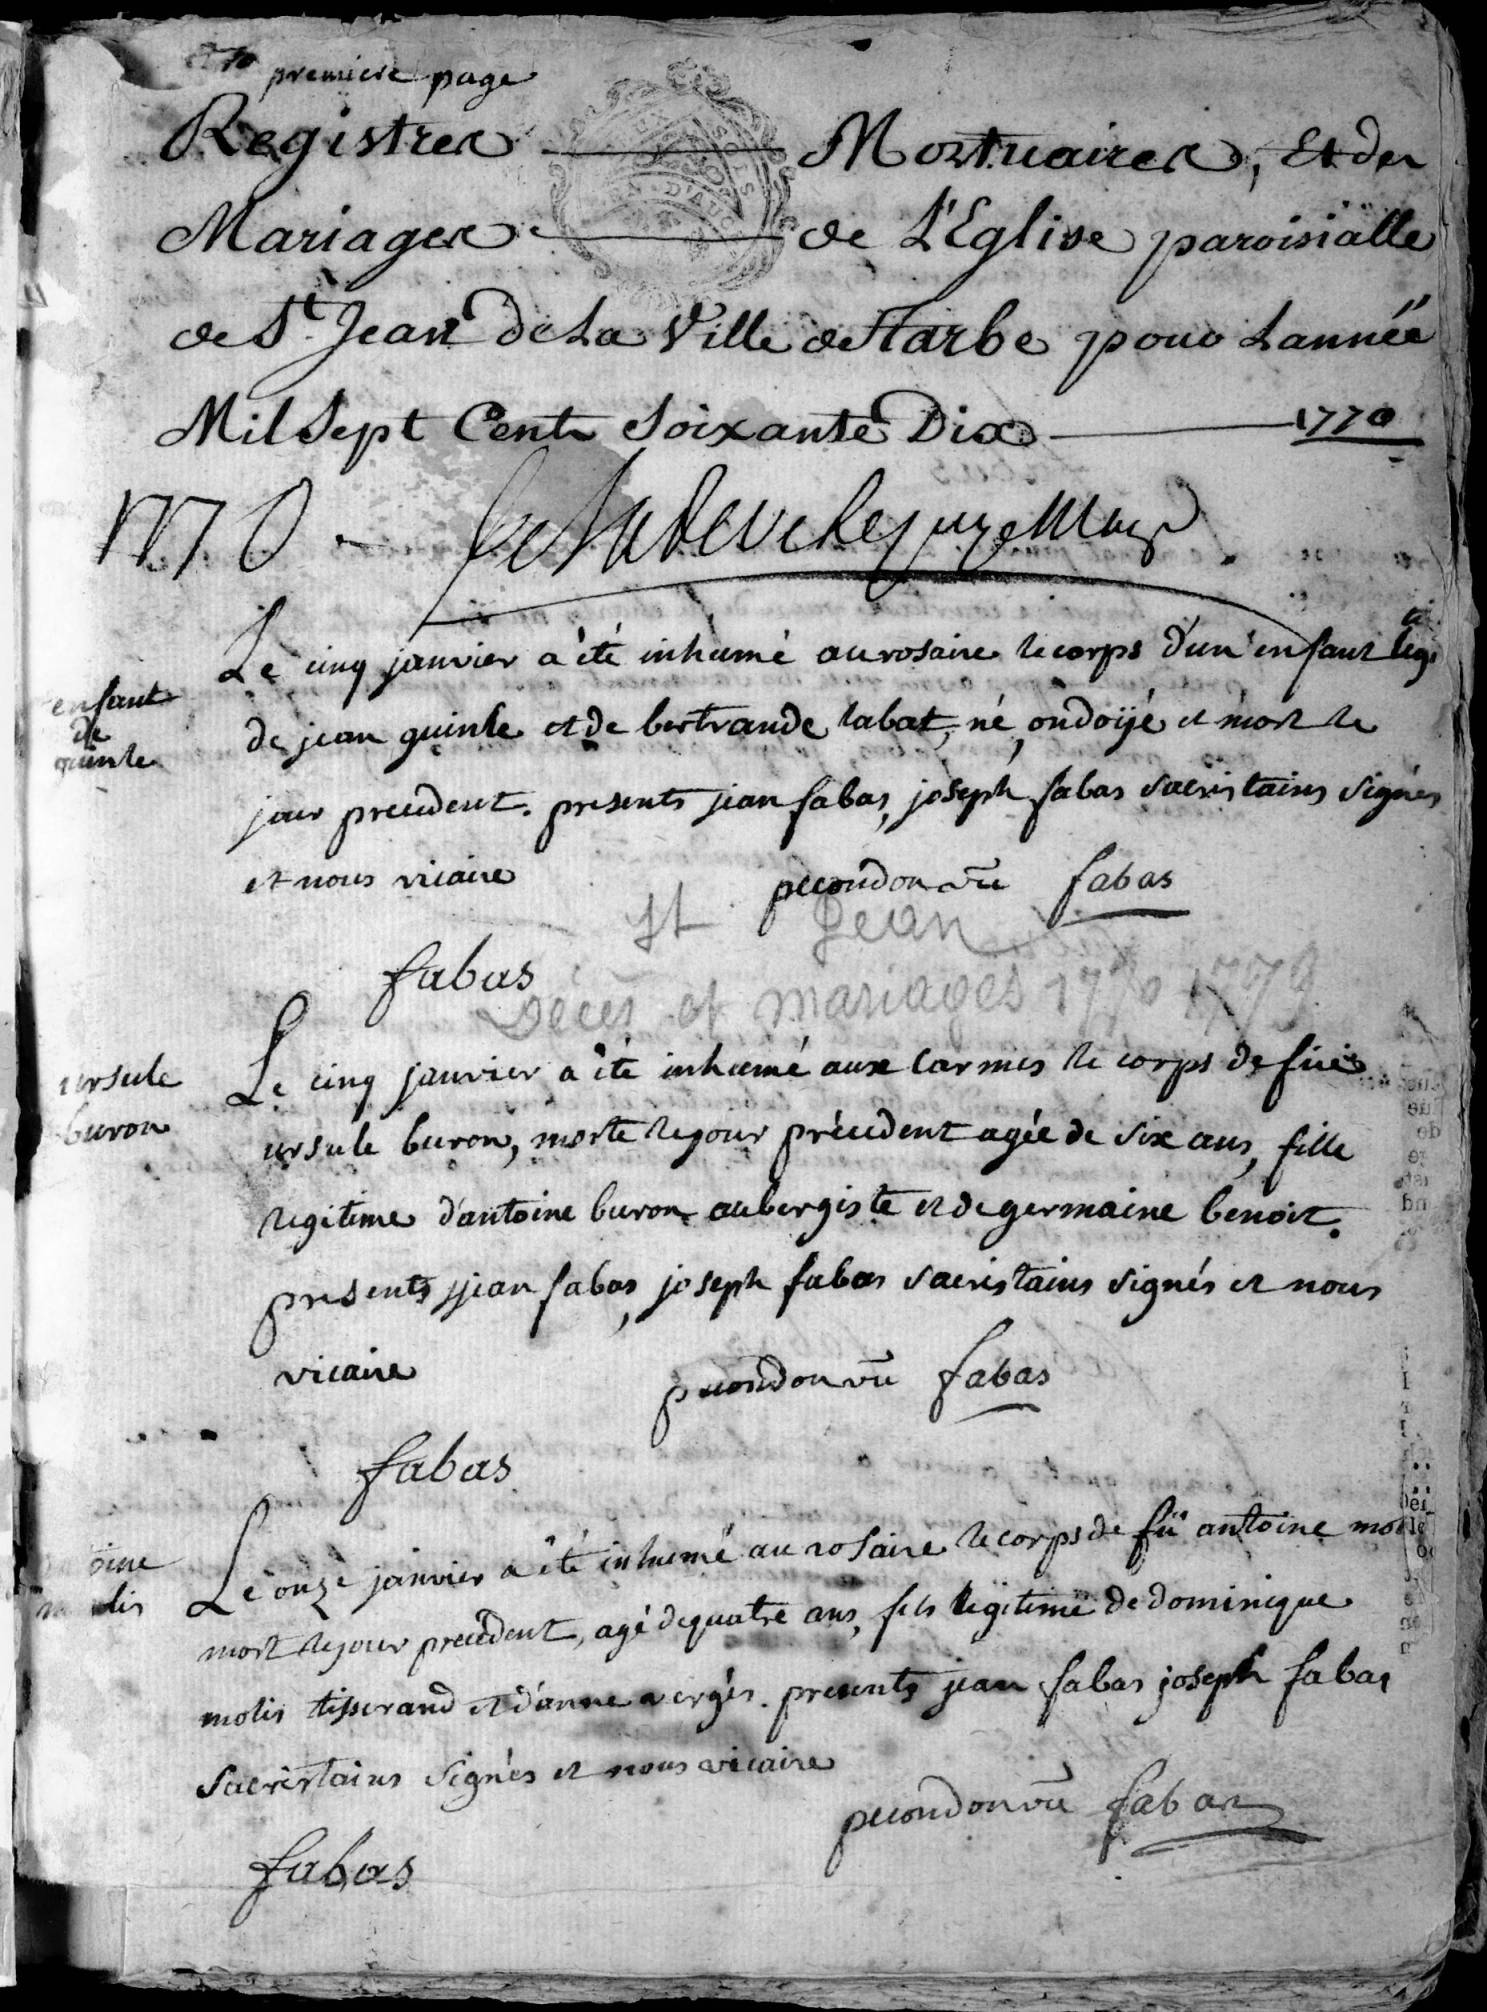 premiere page
Registres Mortuaires, Et des
Mariages de L'Eglise paroisialle
de St. Jean de La Ville de Tarbe pour Lannéé
Mil Sept Cent Soixante Dix 1770
1770
Le cinq janvier a èté inhumé au rosaire le corps d'un enfant legi
enfant
de
guinle
de jean guinle et de bertrande labat, né, ondoÿé et mort le
jour precedent. presents jean fabas, joseph fabas sacristains signés
et nous vicaire pecondon vre fabas
St Jean
fabas
Décès et mariages 1770 1779
ursule
buron
Le cinq janvier a èté inhumé aux Carmes le corps de feüe
ursule buron, morte le jour précedent agée de six ans, fille
legitime d'antoine buron aubergiste et de germaine benoit.
presents jean fabas, joseph fabas sacristains signés et nous
vicaire pecondon vre fabas
fabas
Le onze janvier a èté inhumé au rosaire le corps de fü antoine
mort le jour precedent, agé de quatre ans, fils legitime de dominique
molis tisserand et d'anne vergés. presents jean fabas joseph fabas
sacristains signés et nous vicaire
pecondon vre fabas
fabas